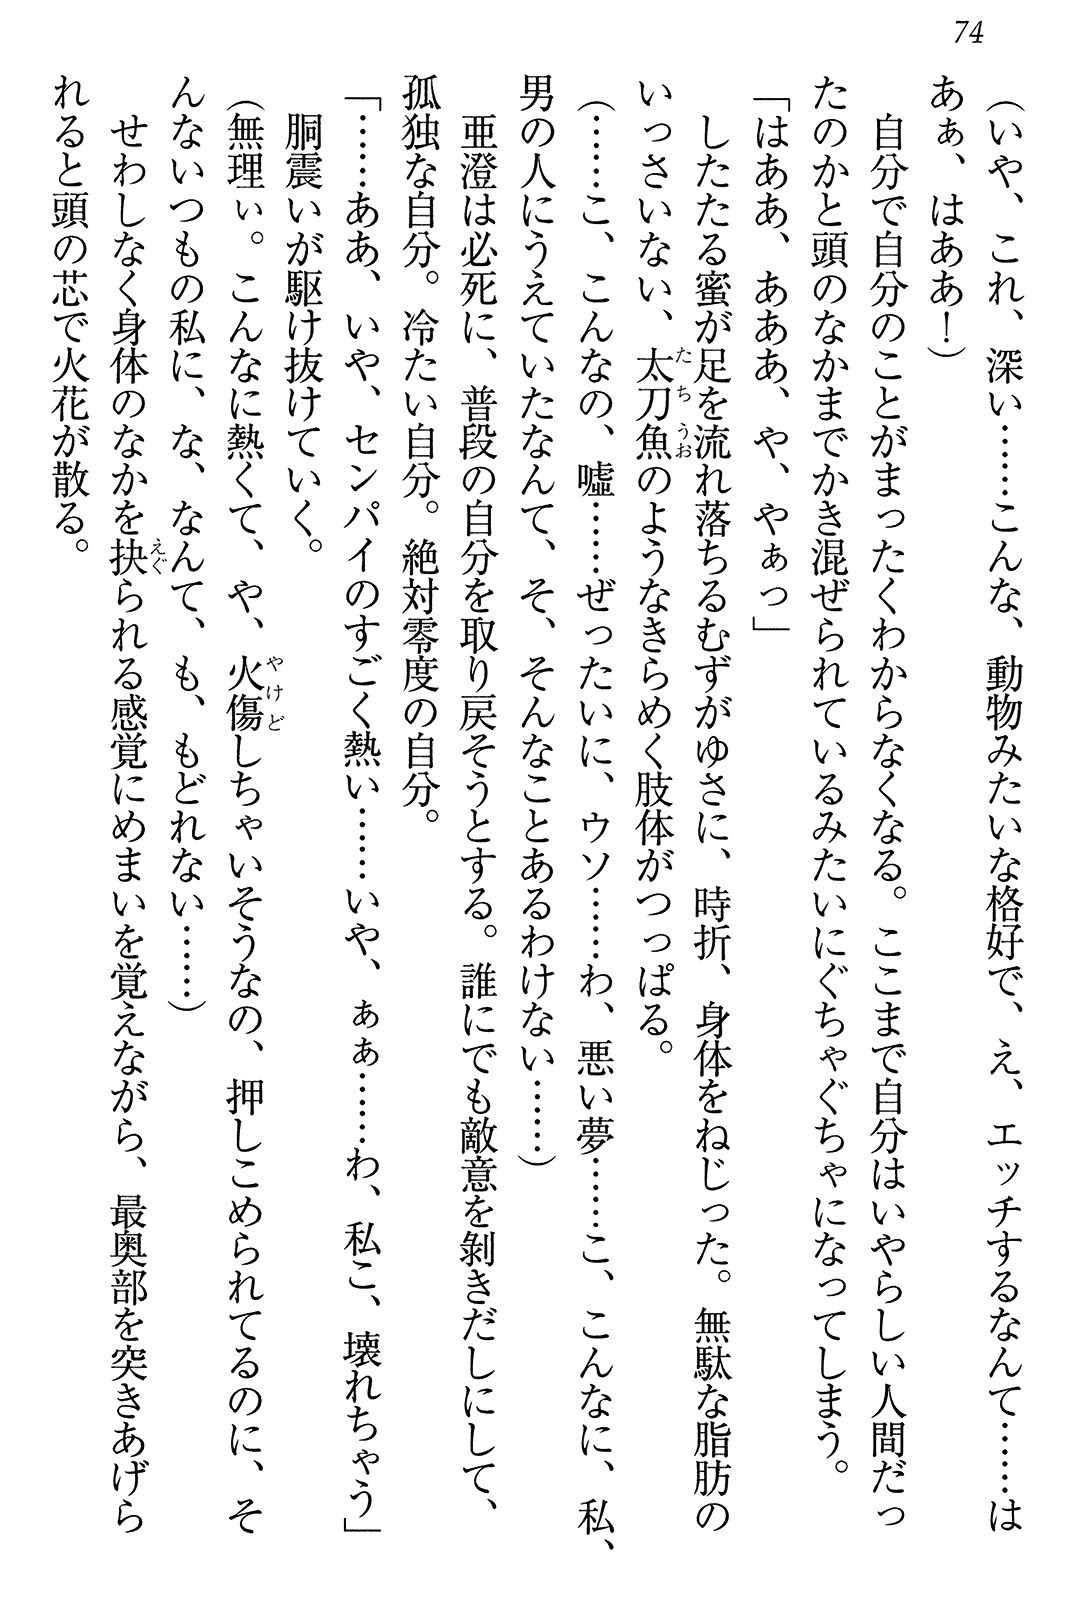 74
(いや、これ、深い……こんな、動物みたいな格好で、え、エッチするなんて……は
あぁ、はああ！)
自分で自分のことがまったくわからなくなる。ここまで自分はいやらしい人間だっ
たのかと頭のなかまでかき混ぜられているみたいにぐちゃぐちゃになってしまう。
「はああ、あああ、や、やぁっ」
したたる蜜が足を流れ落ちるむずがゆさに、時折、身体をねじった。無駄な脂肪の
いっさいない、太刀魚のようなきらめく肢体がつっぱる。
(……こ、こんなの、嘘……ぜったいに、ウソ……わ、悪い夢……こ、こんなに、私、
男の人にうえていたなんて、そ、そんなことあるわけない……)
亜澄は必死に、普段の自分を取り戻そうとする。誰にでも敵意を剝きだしにして、
孤独な自分。冷たい自分。絶対零度の自分。
「……ああ、いや、センパイのすごく熱い……いや、ぁぁ……わ、私こ、壊れちゃう」
胴震いが駆け抜けていく。
(無理ぃ。こんなに熱くて、や、火傷しちゃいそうなの、押しこめられてるのに、そ
んないつもの私に、な、なんて、も、もどれない……)
せわしなく身体のなかを抉られる感覚にめまいを覚えながら、最奥部を突きあげら
れると頭の芯で火花が散る。